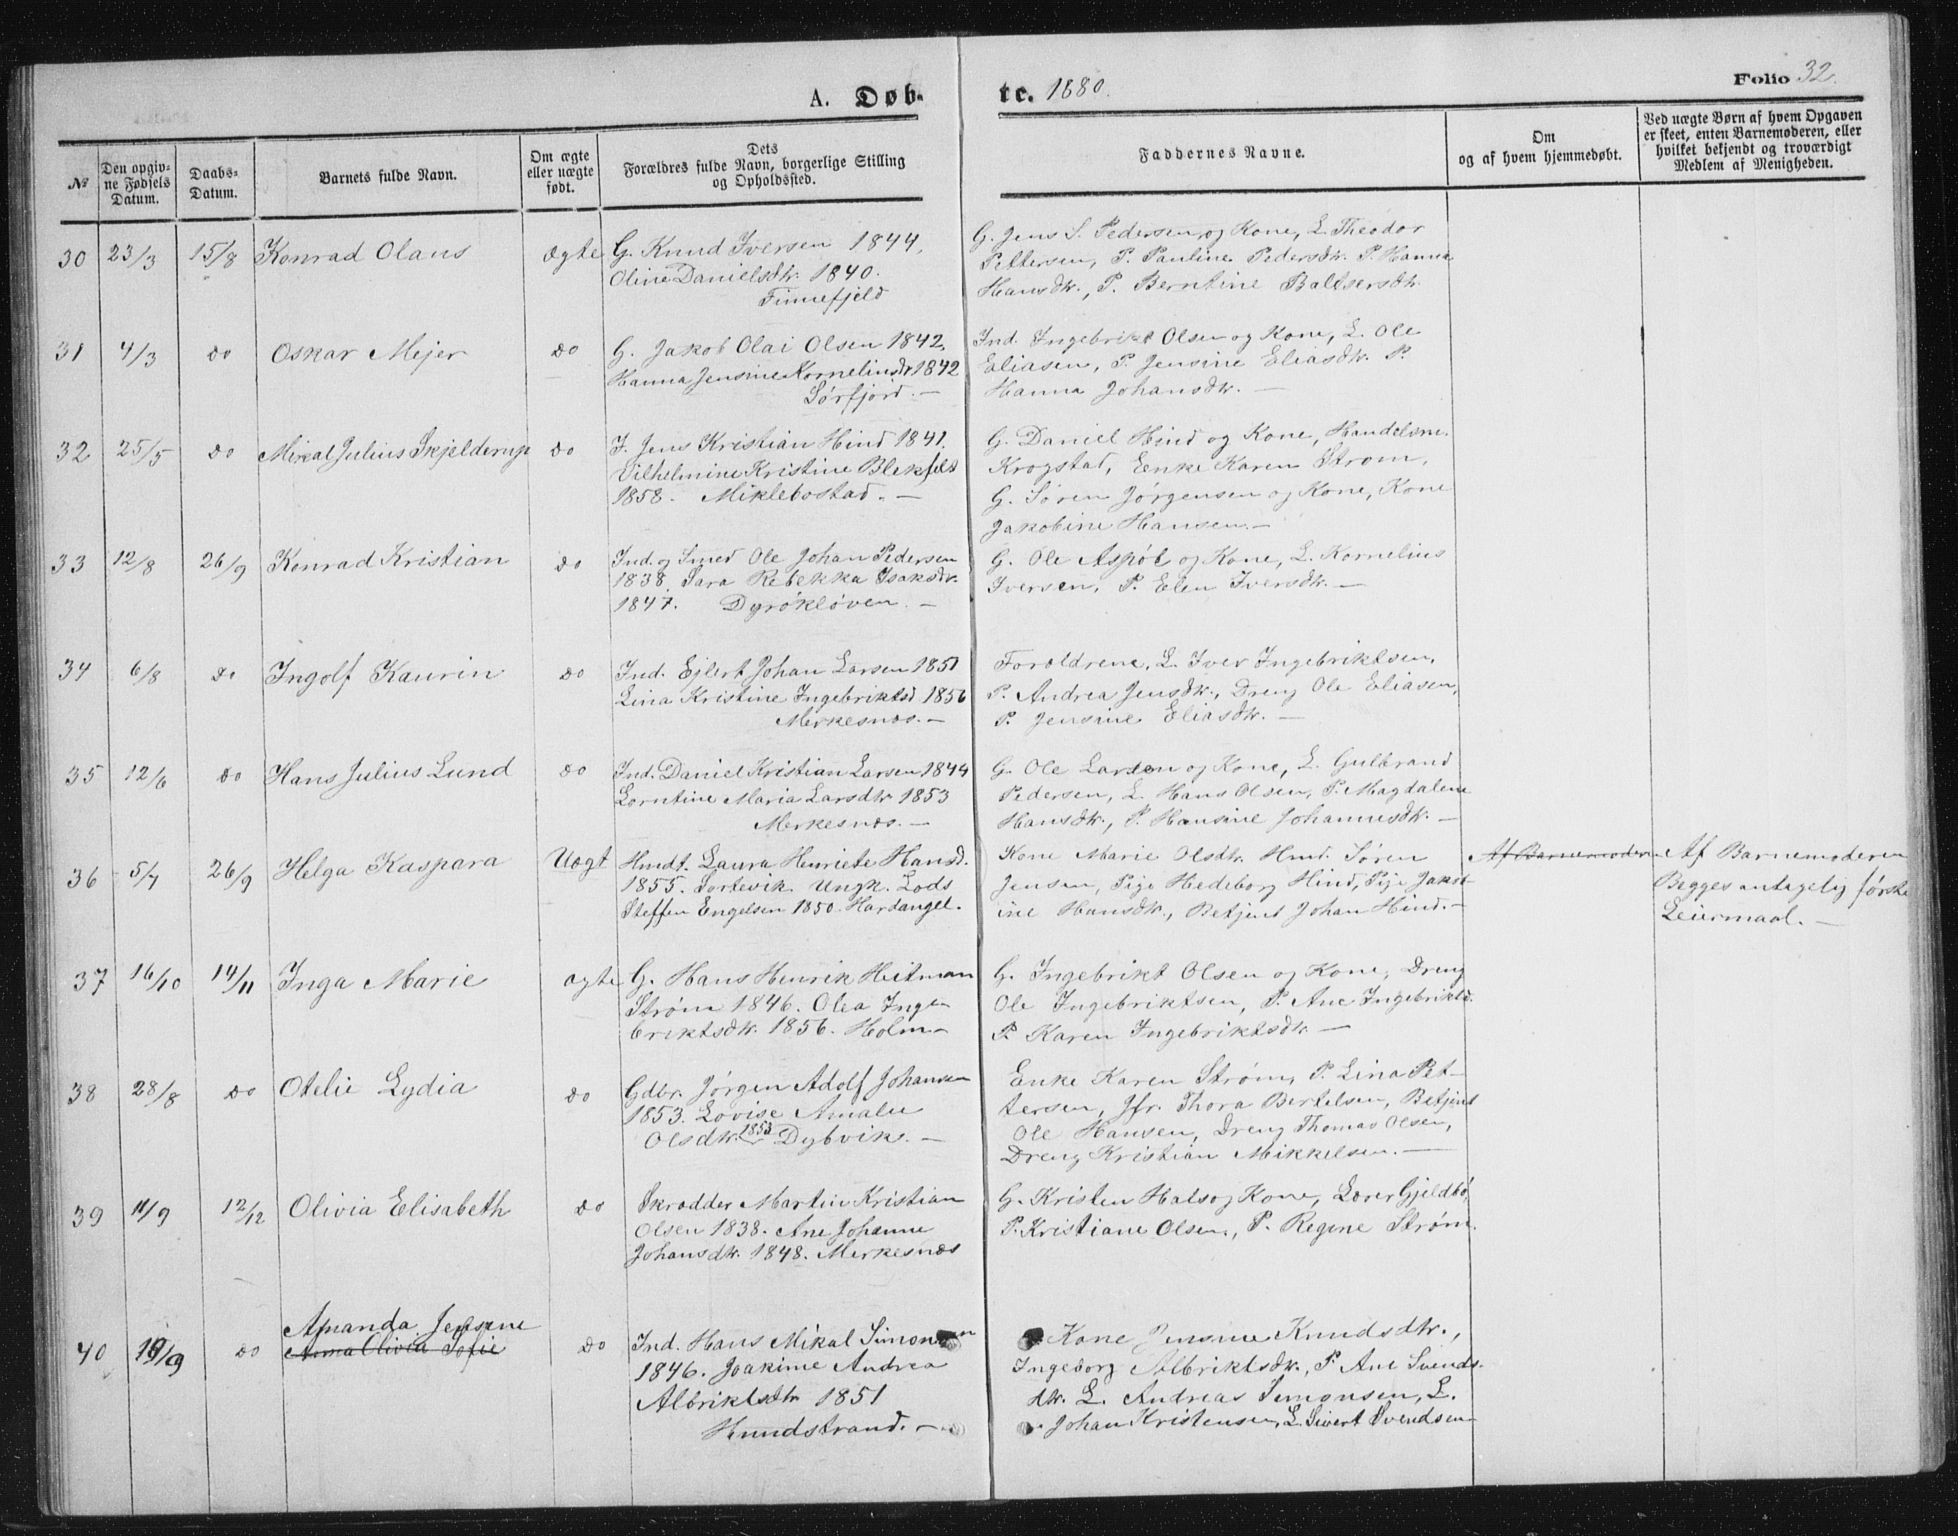 A. Døb-
tc. 1880.
Folio 32.
№
Den opgiv-
ne Fødsels
Datum.
Daabs-
Datum.
Barnets fulde Navn.
Om ægte
eller uægte
født.
Dets
Forældres fulde Navn, borgerlige Stilling
og Opholdssted.
Faddernes Navne.
Om
og af hvem hjemmedøbt.
Ved uægte Børn af hvem Opgaven
er skeet, enten Barnemoderen, eller
hvilket bekjendt og troværdigt
Medlem af Menigheden.
30 23/3 15/8 Konrad Olaus ægte
G. Knud Iversen 1844,
Oline Danielsdtr. 1840.
Finnefjeld
G. Jens S. Pedersen og Kone, L. Theodor
Pettersen, P. Pauline Pedersdtr. P. Hanna
Hansdtr., P. Berntine Baltsersdtr.
31 4/3 do Oskar Mejer do
G. Jakob Olai Olsen 1842,
Hanna Jensine Kornelinsdr 1842
Sørfjord. —
Ind. Ingebrikt Olsen og Kone, L. Ole
Eliasen, P. Jensine Eliasdtr. P.
Hanna Johansdtr. —
32 25/5 do Mikal Julius Skjelderup do
I. Jens Kristian Hind 1841.
Vilhelmine Kristine Blekfelt
1858. Miklebostad. —
G. Daniel Hind og Kone, Handelsm.
Krogstad, Enke Karen Strøm,
G. Søren Jørgensen og Kone, Kone
Jakobine Hansen. —
33 12/8 26/9 Konrad Kristian do
Ind. og Smed Ole Johan Pedersen
1838. Sara Rebekka Isaksdtr.
1847. Dyrøkløven. —
G. Ole Aspøt og Kone, L. Kornelius
Iversen, P. Elen Iversdtr. —
34 6/8 do Ingolf Kaurin do
Ind. Ejlert Johan Larsen 1851
Lina Kristine Ingebriktsd 1856
Merkesnæs. —
Forældrene, L. Iver Ingebriktsen,
P. Andrea Jensdtr., Dreng Ole Eliasen,
P. Jensine Eliasdtr. —
35 12/6 do Hans Julius Lund do
Ind. Daniel Kristian Larsen 1844
Lorntine Maria Larsdtr 1853
Merkesnæs. —
G. Ole Larsen og Kone, L. Gulbrand
Pedersen, L. Hans Olsen, P. Magdalene
Hansdtr., P. Hansine Johannesdtr. —
36 5/7 26/9 Helga Kaspara Uægt
Hmdt. Laura Henriete Hansd.
1855. Sørtevik. Ungk. Lods
Steffen Engelsen 1850. Hardangel.
Kone Marie Olsdtr. Hmd. Søren
Jensen, Pige Hedeborg Hind, Pige Jakob-
ine Hansdtr., Betjent Johan Hind. —
Af Barnemoderen
Af Barnemoderen
Begges antagelig første
Leiermaal. —
37 16/10 14/11 Inga Marie ægte
G. Hans Henrik Heitman
Strøm 1846. Olea Inge-
briktsdtr. 1856. Holm —
G. Ingebrikt Olsen og Kone, Dreng
Ole Ingebriktsen, P. Ane Ingebriktsd.
P. Karen Ingebriktsdtr. —
38 28/8 do Otelie Lydia do
Gdbr. Jørgen Adolf Johansen
1853. Lovise Amalie
Olsdtr. 1853 Dybvik. —
Enke Karen Strøm, P. Lina Pet-
tersen, Jfr. Thora Bertelsen, Betjent
Ole Hansen, Dreng Thomas Olsen,
Dreng Kristian Mikkelsen. —
39 11/9 12/12 Olivia Elisabeth do
Skrædder Martin Kristian
Olsen 1838. Ane Johanne
Johansdtr. 1848. Merkesnæs
G. Kristen Hals og Kone, Lærer Gjeldbø,
P. Kristiane Olsen, P. Regine Strøm.
Amanda Jensine
40 19/9 do Anna Olivia Sofie do
Ind. Hans Mikal Simonsen
1846. Joakime Andrea
Albriktsdtr 1851
Hundstrand. —
Kone Jensine Knudsdtr.,
Ingeborg Albriktsdtr., P. Ane Svends-
dtr. L. Andreas Simonsen, L.
Johan Kristensen, L. Sivert Svendsen